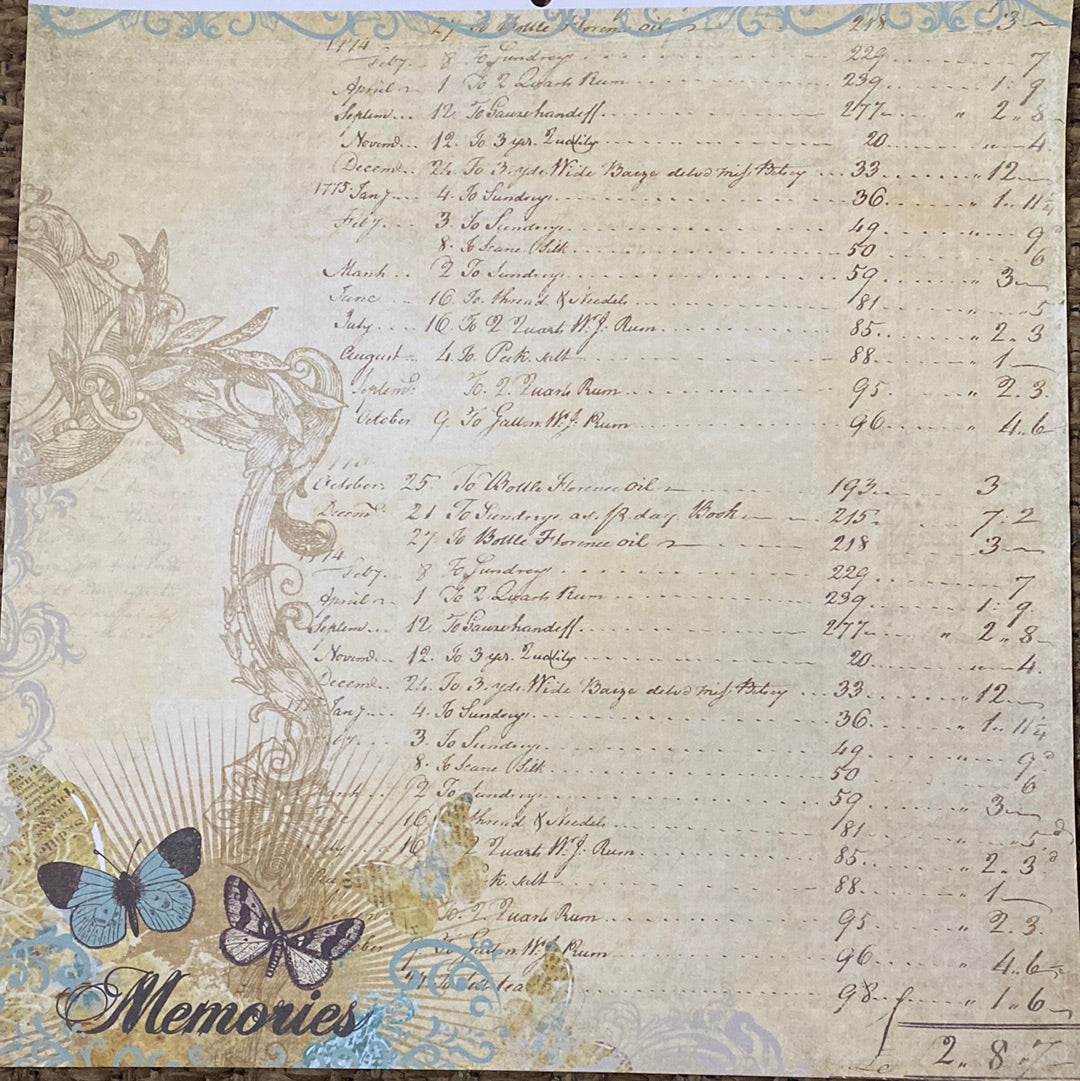 27 To Bottle Florence oil 218 3
1774 Feby. 8 To Sundrys 229 7
April 1 To 2 Quarts Rum 239 1: 9
Septem... 12. To Gauze handkff. 277 " 2 " 8
Novemd... 12. To 3 yds. Quality 20 " " 4.
Decem... 24. To 3. yds. Wide Baize deld Miss Betsey 33 " 12
1775 Jany 4. To Sundrys 36. " 1.. 11 1/4
Feby. 3. To Sundrys 49 " 9d
8. To Scane Silk 50 6
March 2 To Sundrys 59 " 3
June 16. To thread & Needels 81 5
July 16. To 2 Quarts W.J. Rum. 85. " 2. 3
August 4. To. Peck salt 88 " 1
Septemr: To. 2. Quarts Rum 95 " 2. 3.
October 9. To Gallon W.J. Rum 96 4..6
October: 25 To Bottle Florence oil 193 3
Decemr 21 To Sundrys as. pr. day Book 215. 7: 2
27. To Bottle Florence oil 218 3
1774
Feby. 8 To Sundrys 229 7
April 1 To 2 Quarts Rum 239 1: 9.
Septem... 12. To Gauze handkff. 277 " 2 " 8
Novemd... 12. To 3 yds. Quality 20 " " 4.
Decem... 24. To. 3. yds. Wide Baize deld Miss Betsey 33 " 12
Jany 4. To Sundrys 36. " 1.. 11 1/4
3. To Sundrys 49 9d
8. To Scane Silk 50 6
2 To Sundrys 59 " 3
16 thread & Needels 81 " 5d
16 2 Quarts W.J. Rum. 85. " 2. 3d
salt 88. " 1
To. 2. Quarts Rum 95 " 2. 3.
Gallon W.J. Rum 96 " 4..6
tea 98 " 1 " 6
Memories
2 " 8 " 7